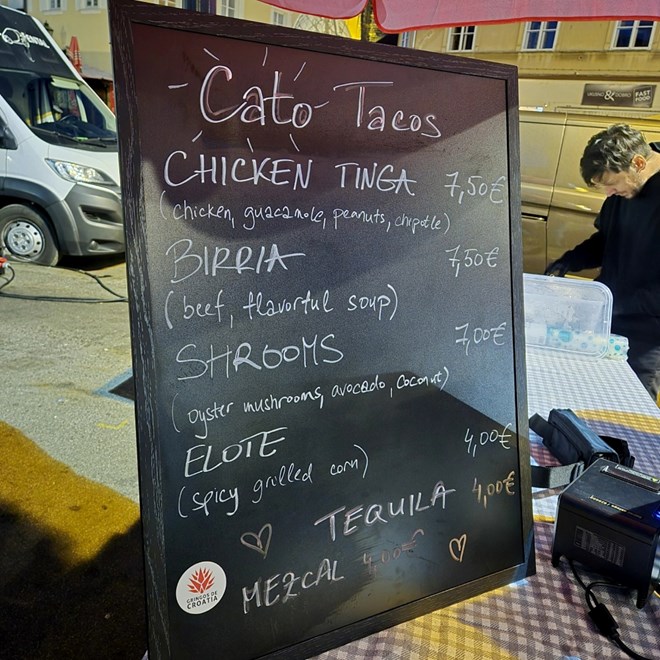 Cato Tacos
CHICKEN TINGA 7,50€
(chicken, guacamole, peanuts, chipotle)
BIRRIA 7,50€
(beef, flavorful soup)
SHROOMS 7,00€
(oyster mushrooms, avocado, coconut)
ELOTE 4,00€
(spicy grilled corn)
TEQUILA 4,00€
MEZCAL 4,00€
GRINGOS DE
CROATIA
& FAST
FOOD